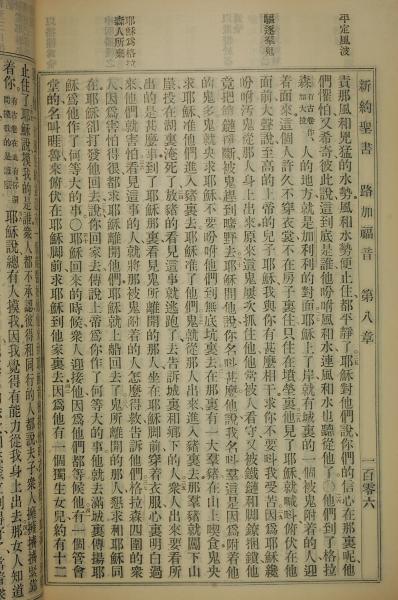 新約聖書 路加福音 第八章 一百零六
平定風波
責那風和兇猛的水勢風和水勢便止住都平靜了耶穌對他們說你們的信心在那裏呢他
們懼怕又希奇彼此說這到底是誰他吩咐風和水連風和水也聽從他了〇他們到了格拉
森有古卷作加大拉人的地方就是加利利的對面耶穌上了岸就有城裏的一個被鬼附着的人迎
驅逐羣鬼
着面來這個人許久不穿衣裳不在房子裏住只住在墳塋裏他見了耶穌就喊叫俯伏在他
面前大聲說至高的上帝的兒子耶穌我與你有甚麼相干求你不要叫我受苦因爲耶穌纔
吩咐汚鬼從那人身上出來原來這鬼屢次抓住他他常被人看守又被鐵鏈和脚鐐捆鎖他
竟把鎖鏈掙斷被鬼趕到曠野去耶穌問他說你名叫甚麼他說我名叫羣這是因爲附着他
的鬼多鬼就央求耶穌不要吩咐他們到無底坑裏去在那裏有一大羣豬在山上喫食鬼央
求耶穌准他們進入豬裏去耶穌准了他們鬼就從那人出來進入豬裏去那羣豬就闖下山
崖投在湖裏淹死了放豬的看見這事就逃跑了去告訴城裏和鄉下的人衆人出來要看所
出的是甚麼事到了耶穌那裏看見鬼所離開的那人坐在耶穌脚前穿着衣服心裏明白過
耶穌爲格拉
森人所棄
來他們就害怕看見這事的人就將那被鬼附着的人怎麼得救告訴他們格拉森四圍的衆
人因爲害怕得很都求耶穌離開他們耶穌就上船回去了鬼所離開的那人懇求和耶穌同
在耶穌卻打發他回去說你回家去傳說上帝爲你作了何等大的事他就去滿城裏傳揚耶
穌爲他作了何等大的事〇耶穌回來的時候衆人迎接他因爲他們都等候他有一個管會
堂的名叫睚魯來俯伏在耶穌脚前求耶穌到他家裏去因爲他有一個獨生女兒約有十二
止住了耶穌說摸我的是誰衆人都不承認彼得和同行的人都說夫子衆人擁擁擠擠緊靠
着你耶穌說總有人摸我因我覺得有能力從我身上出去那女人知道